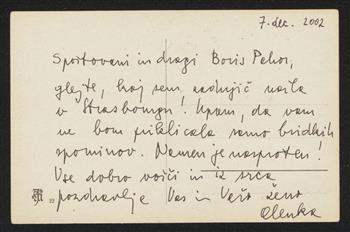 7. dec. 2002
Spoštovani in dragi Boris Pahor,
glejte, kaj sem nedavno našla
v Strasbourgu! Upam, da vam
ne bom priklicala samo bridkih
spominov. Namen je nasproten!
Vse dobro vošči in iz srca
pozdravlja Vas in Vašo ženo
Olenka
22